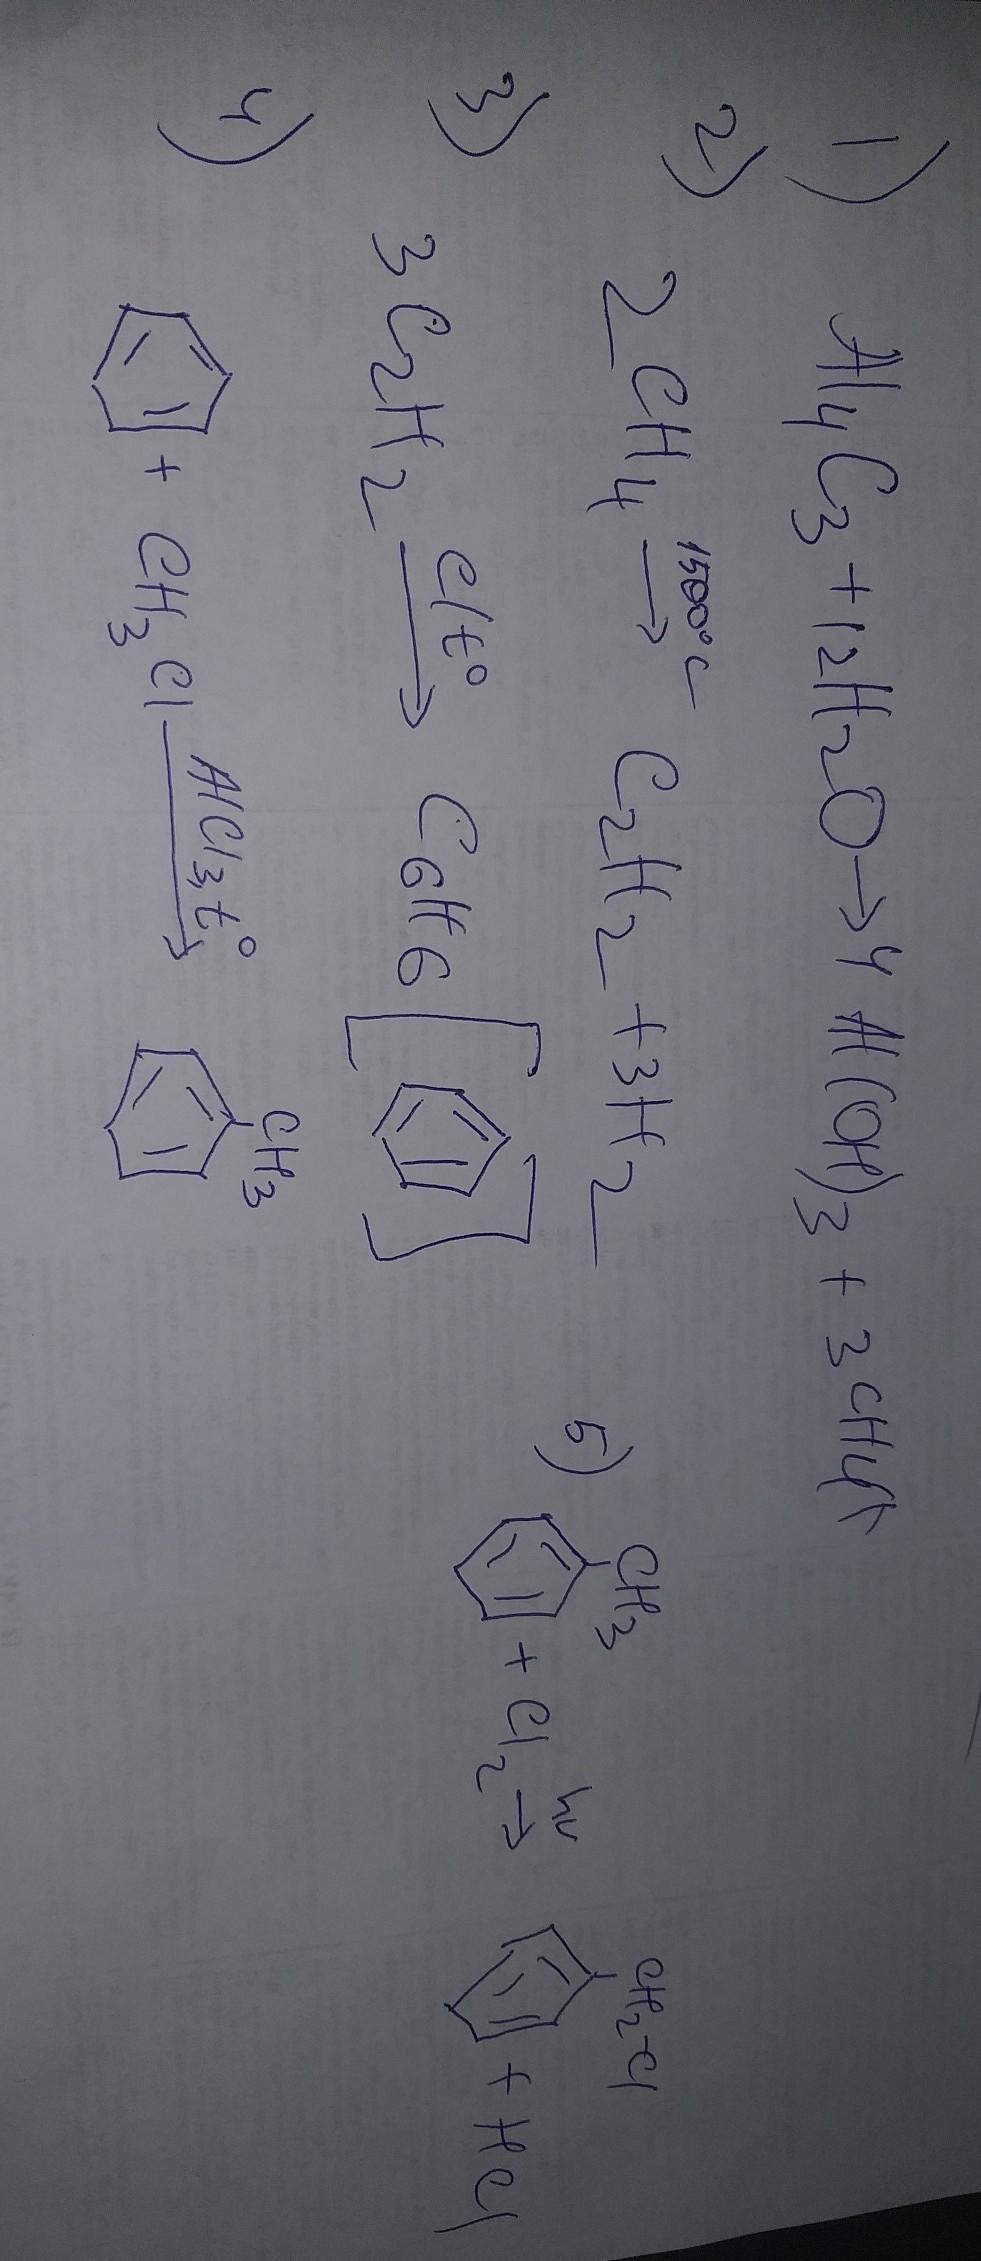 1) Al4C3 + 12H2O → 4 Al(OH)3 + 3CH4↑
2) 2CH4 1500°C → C2H2 + 3H2
3) 3C2H2 C/t° → C6H6 [ ]
4) + CH3Cl AlCl3,t° → CH3
5) CH3 + Cl2 hν → CH2Cl + HCl